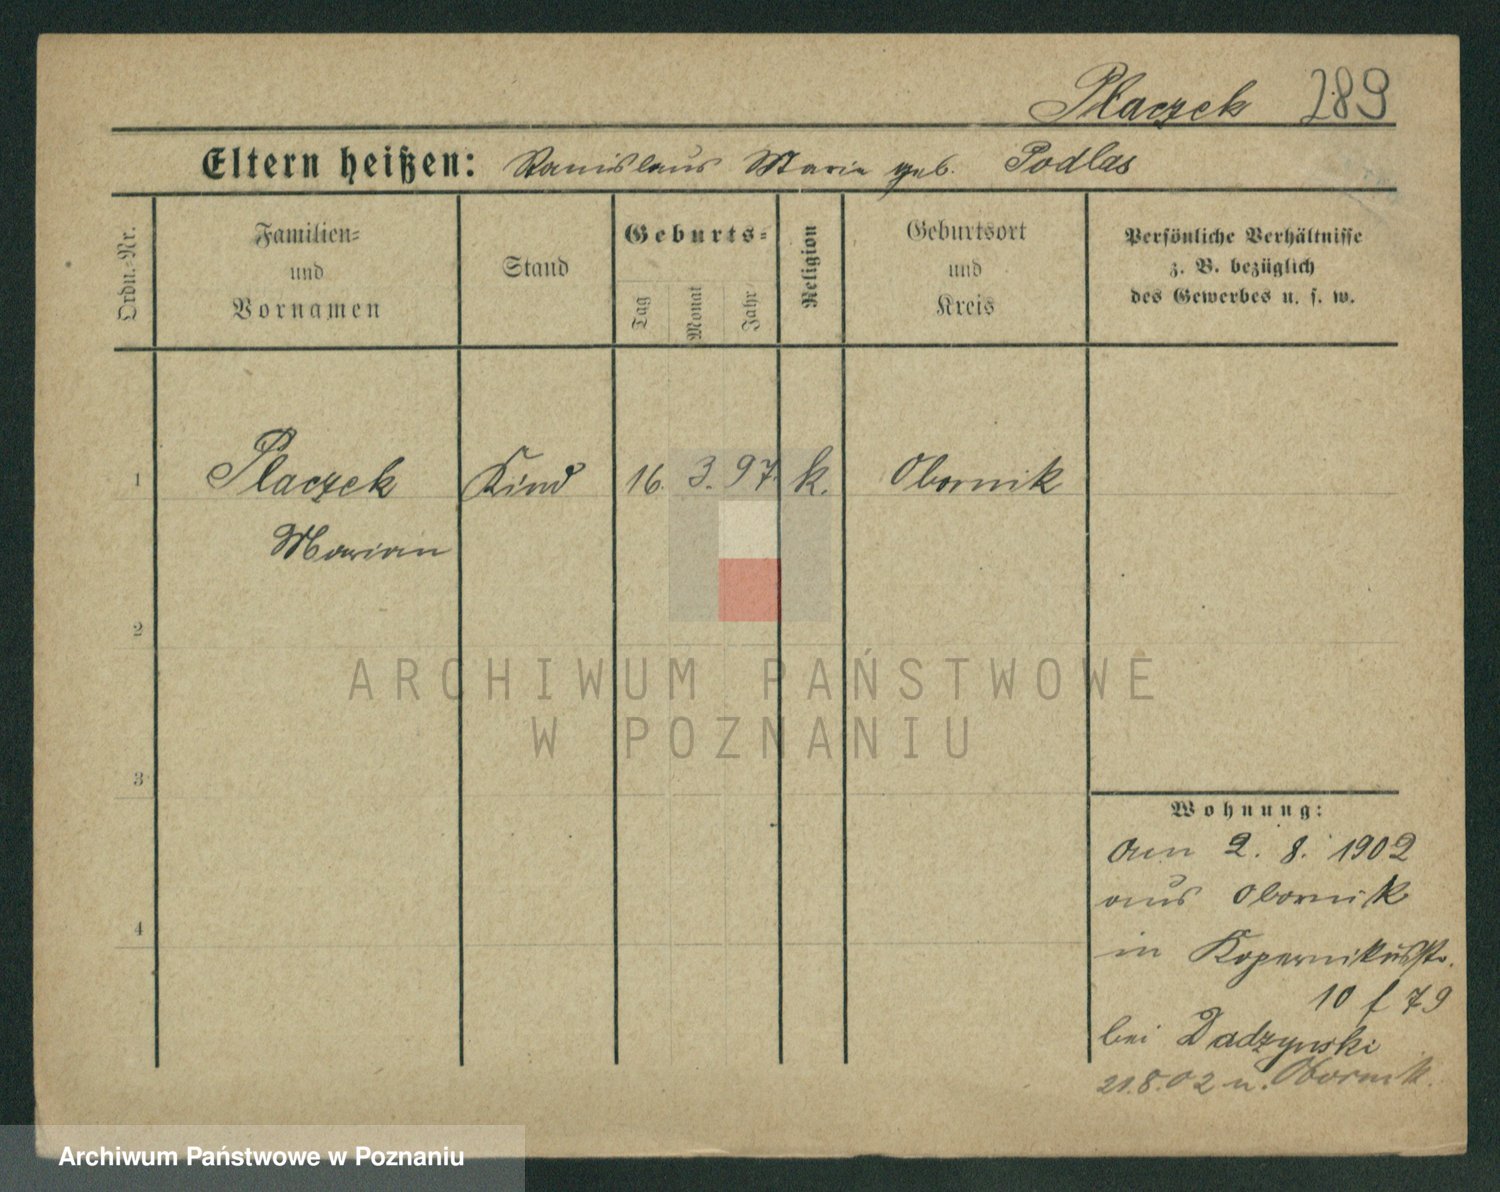 Płaczek 289
Eltern heißen: Stanislaus Marie geb. Podlas
Ordn.-Nr.
Familien-
und
Vornamen
Stand
Geburts-
Tag
Monat
Jahr
Religion
Geburtsort
und
Kreis
Persönliche Verhältnisse
z. B. bezüglich
des Gewerbes u. s. w.
1 Placzek Kind 16. 3. 97. k. Obornik
Marian
2
3
4
ARCHIWUM PAŃSTWOWE
W POZNANIU
Wohnung:
Am 2. 8. 1902
aus Obornik
in Kopernikusstr.
10 f 79
bei Dadzynski
21.8.02 n. Obornik.
Archiwum Państwowe w Poznaniu